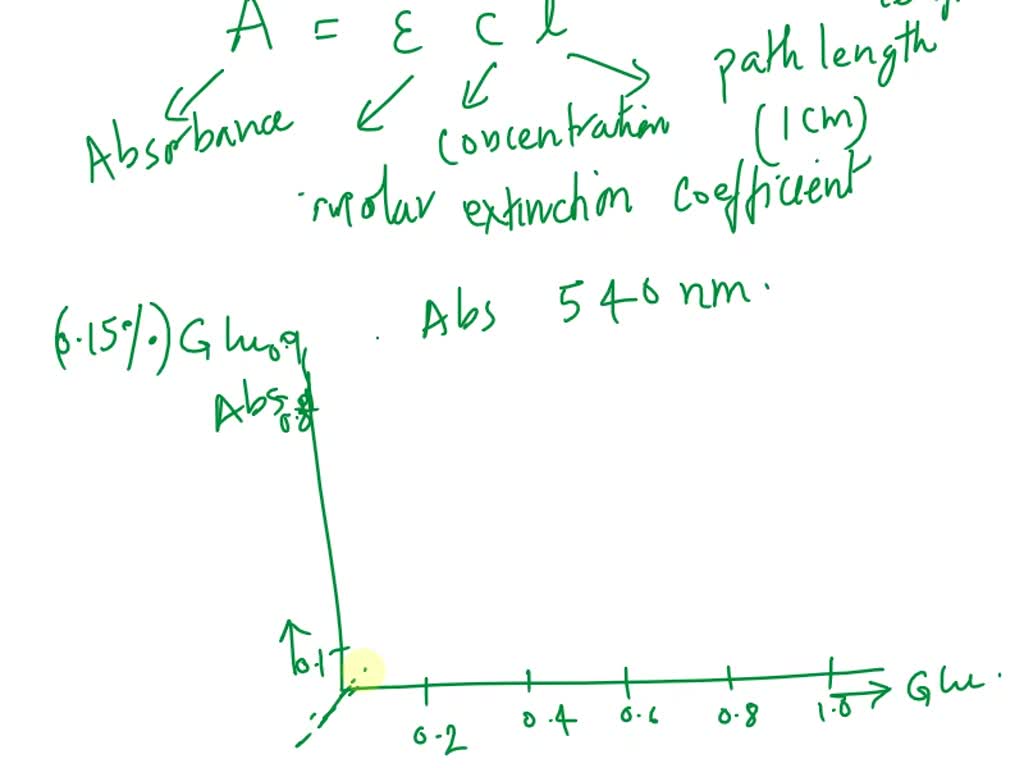 A = ε c l
path length
(1 cm)
Absorbance
concentration
molar extinction coefficient
(0.15%) Glu
Abs 540 nm.
0.9
Abs
0.8
0.1
0.2 0.4 0.6 0.8 1.0
Glu.